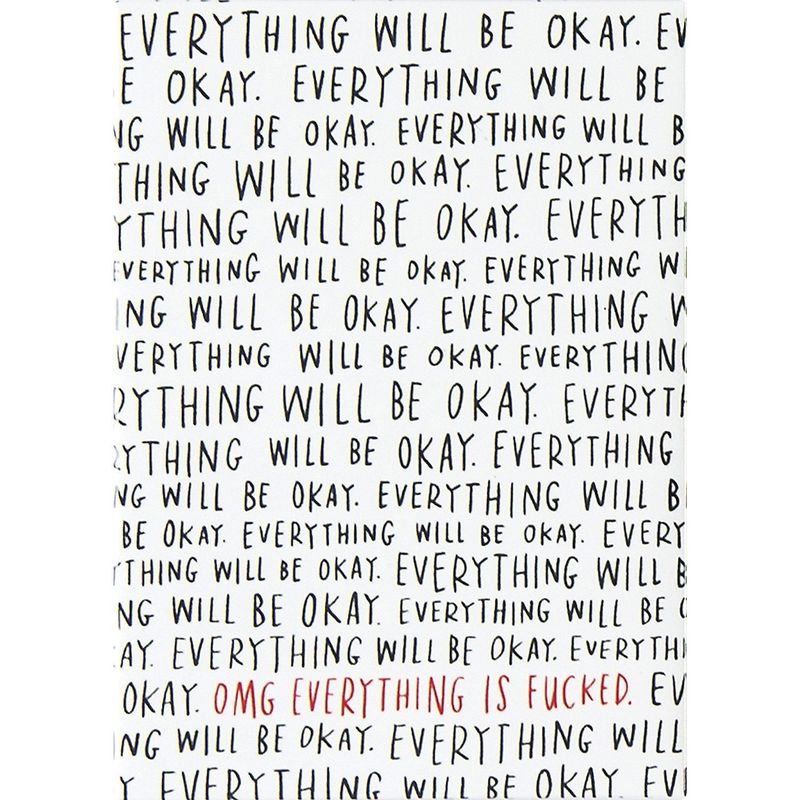 EVERYTHING WILL BE OKAY. EV
BE OKAY. EVERYTHING WILL BE
NG WILL BE OKAY. EVERYTHING WILL B
THING WILL BE OKAY. EVERYTHING
YTHING WILL BE OKAY. EVERYTH
EVERYTHING WILL BE OKAY. EVERYTHING W
ING WILL BE OKAY. EVERYTHING W
VERYTHING WILL BE OKAY. EVERYTHING
RYTHING WILL BE OKAY. EVERYTH
RYTHING WILL BE OKAY. EVERYTHING
NG WILL BE OKAY. EVERYTHING WILL B
BE OKAY. EVERYTHING WILL BE OKAY. EVERY
YTHING WILL BE OKAY. EVERYTHING WILL B
NG WILL BE OKAY. EVERYTHING WILL BE O
AY. EVERYTHING WILL BE OKAY. EVERYTHI
OKAY. OMG EVERYTHING IS FUCKED. EV
ING WILL BE OKAY. EVERYTHING WILL
Y EVERYTHING WILL BE OKAY. EV